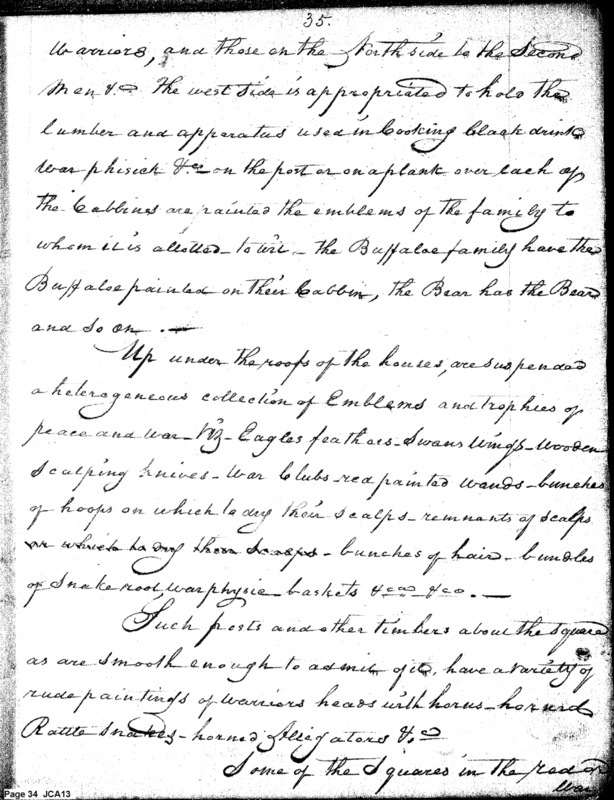 35.
Warriors, and those on the North side to the Second
Men &c the west side is appropriated to hold the
lumber and apparatus used in Cooking black drink
War phisick &c. on the post or on a plank over each of
the Cabbins are painted the emblems of the family to
whom it is allotted - to wit - the Buffaloe family have the
Buffaloe painted on their Cabbin, the Bear has the Bear
and so on. —
Up under the roofs of the houses, are suspended
a heterogeneous collection of Emblems and trophies of
peace and war - Viz - Eagles feathers - Swans Wings - wooden
scalping knives - War Clubs - red painted wands - bunches
of hoops on which to dry their scalps - remnants of scalps
on which to dry their scalps - bunches of hair - bundles
of Snake root war physic - baskets &ca &ca. —
Such posts and other timbers about the square
as are smooth enough to admit of it, have a variety of
rude paintings of warriors heads with horns - horned
Rattle snakes - horned Alligators &c
Some of the Squares in the red or
War
Page 34 JCA13